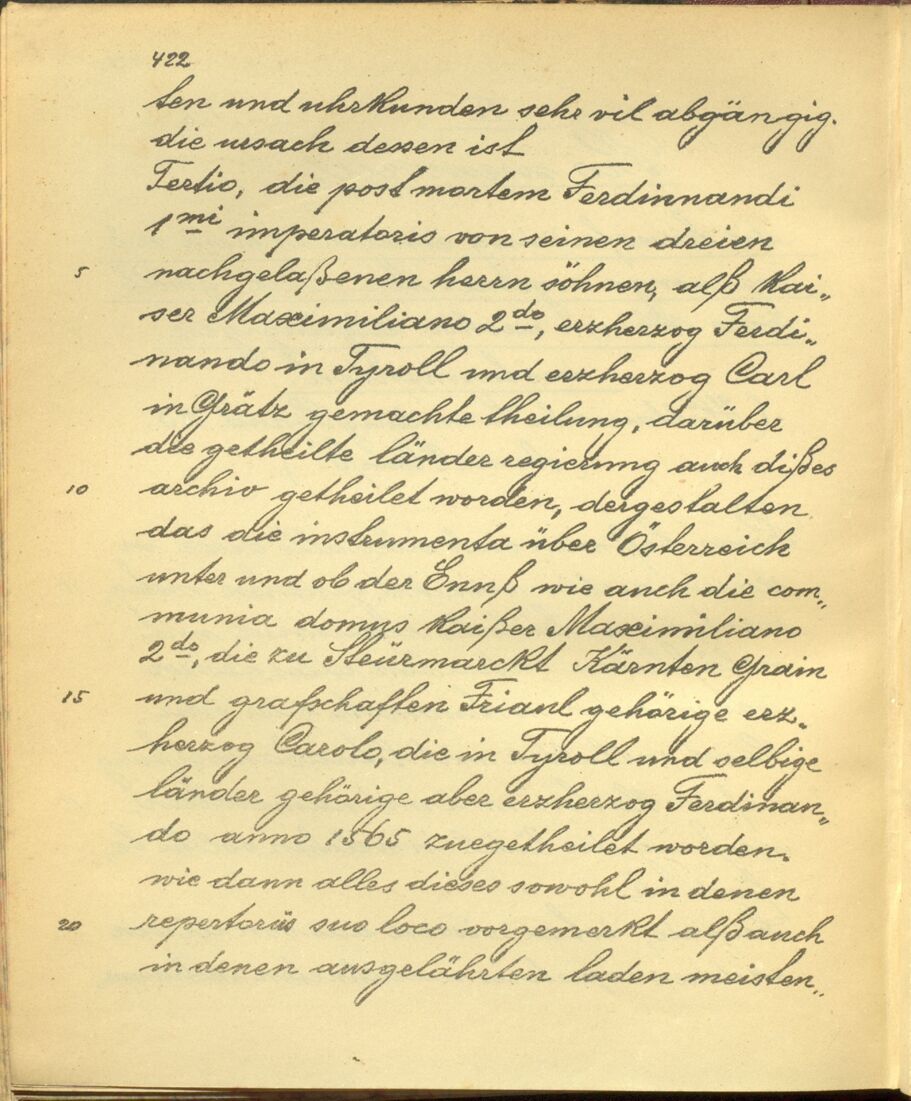 422
ten und uhrkunden sehr vil abgängig.
die ursach dessen ist
Tertio, die post mortem Ferdinnandi
1mi imperatoris von seinen dreien
5 nachgelaßenen herrn söhnen, alß kai„
ser Maximiliano 2do, erzherzog Ferdi„
nando in Tyroll und erzherzog Carl
in Grätz gemachte theilung, darüber
die getheilte länder regierung auch dißes
10 archiv getheilet worden, dergestalten
das die instrumenta über Österreich
unter und ob der Ennß wie auch die com„
munia domus kaißer Maximiliano
2do, die zu Steürmarckt Kärnten Crain
15 und grafschaften Friaul gehörige erz„
herzog Carolo, die in Tyroll und selbige
länder gehörige aber erzherzog Ferdinan„
do anno 1565 zuegetheilet worden.
wie dann alles dieses sowohl in denen
20 repertoriis suo loco vorgemerkt alß auch
in denen ausgelährten laden meisten„